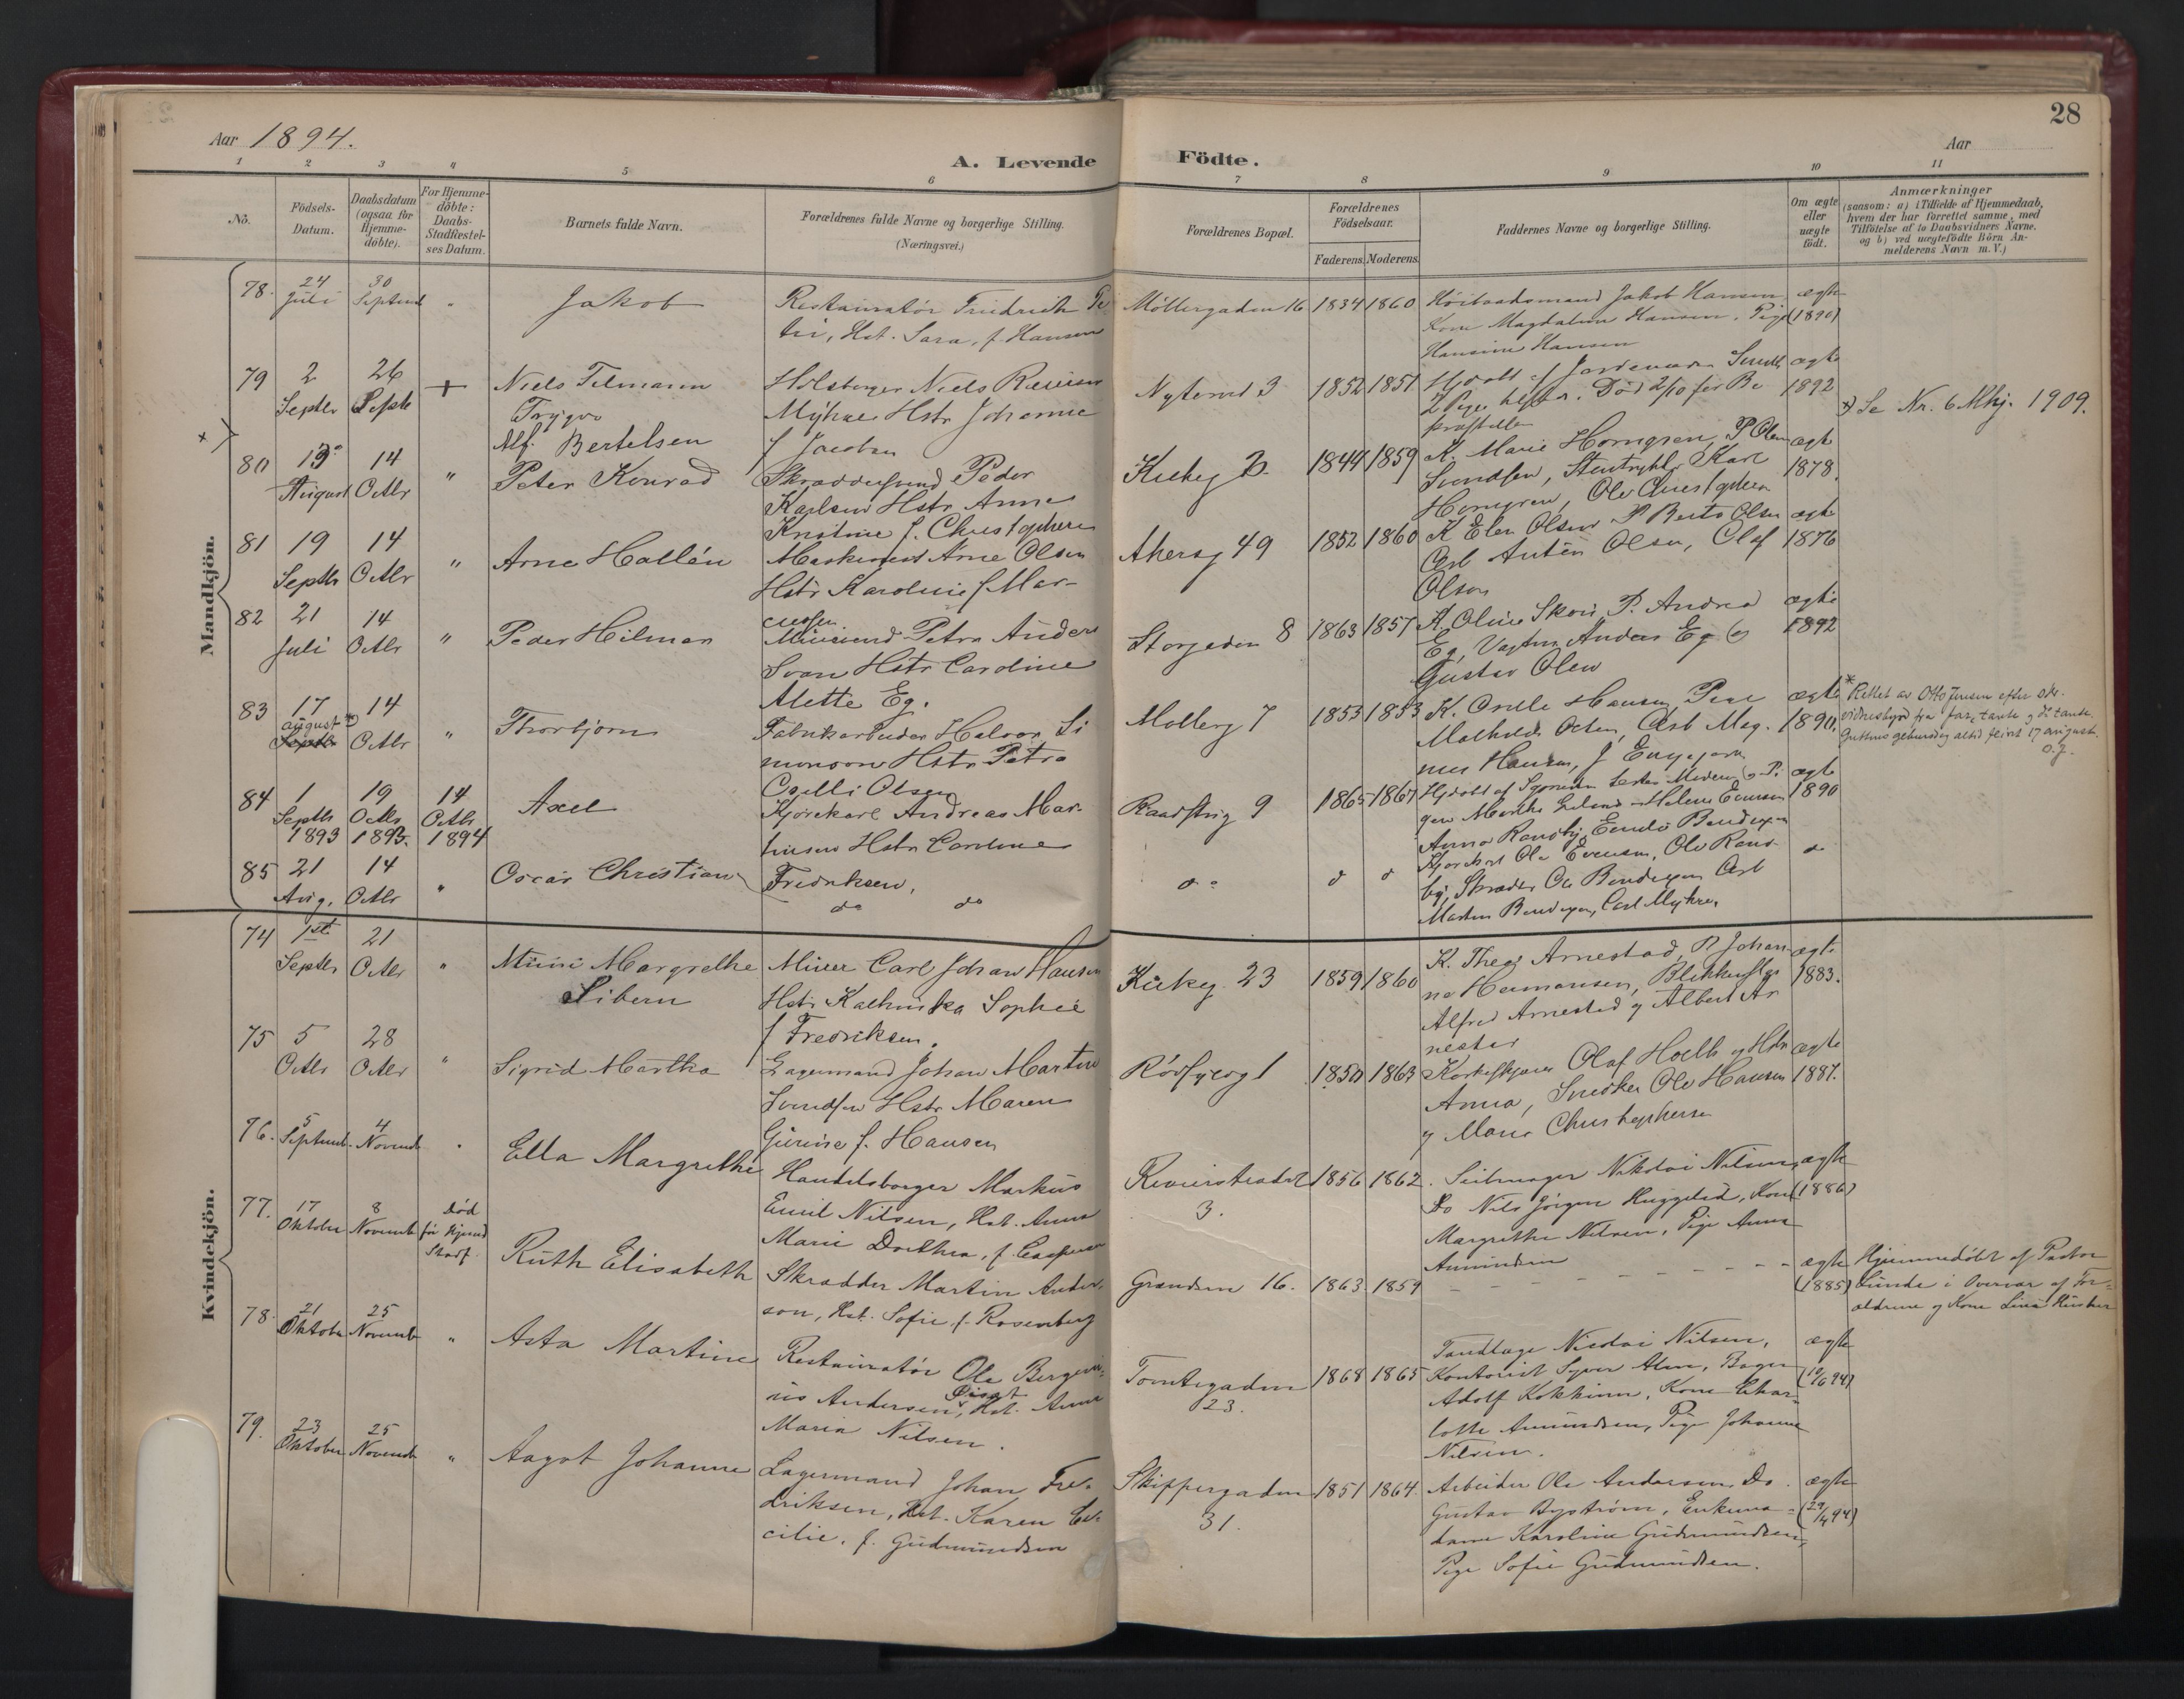 28
Aar 1894.
A. Levende Födte.
Aar
1 2 3 4 5 6 7 8 9 10 11
No.
Födsels-Datum.
Daabsdatum (ogsaa for Hjemmedöbte).
For Hjemmedöbte: Daabs-Stadfestelses Datum.
Barnets fulde Navn.
Forældrenes fulde Navne og borgerlige Stilling.
(Næringsvei.)
Forældrenes Bopæl.
Forældrenes Födselsaar.
Faderens. Moderens.
Faddernes Navne og borgerlige Stilling.
Om ægte eller uægte födt.
Anmærkninger
(saasom: a) i Tilfælde af Hjemmedaab,
hvem der har forrettet samme, med
Tilföielse af to Daabsvidners Navne.
og b) ved uægtefödte Börn An-
melderens Navn m. V.)
Mandkjön.
78. 24 Juli 30 Septemb " Jakob
Restauratør Friedrich Pe-
tri, Hst. Sara, f. Hansen
Möllergaden 16 1834 1860
Jakob Hansen,
Kone Magdalene Hansen, Pige
Hansine Hansen
ægte (1890)
79 2 Septbr 26 Septb + Niels Tilmann
Trygve
Niels
Myhre Hstr Johanne
f Jacobsen
3 1852 1851
ægte 1892
x) Se Nr. 6 Mkj. 1909.
80 13 August 14 Octbr " Alf Bertelsen
Peter Konrad
Skræddersvend Peder
Karlsen Hstr Anne
Kristine f. Christophersen
1844 1859
K. Marie Horngren, P Olen
Svendsen, Karl
Horngren, Ole Christophersen
ægte 1878.
81 19 Septbr 14 Octbr " Arne Hallén
Maskinist Arne Olsen
Hstr Karoline f Mar-
cussen
Akersg 49 1852 1860
K Elen Olsen P. Berte Olsen
Carl Anton Olsen, Olaf
Olsen
ægte 1876
82 21 Juli 14 Octbr " Peder Hilmar
Petra Anders
Svan Hstr Caroline
Alette Eg.
Storgaden 8 1863 1857
K. Oline Skoie P. Andrea
Eg, Anders Eg og
Gustav Olsen
ægte 1892
83 17 August Septbr *) 14 Octbr " Thorbjørn
Fabrikarbeider Halvor Si
monsen Hstr Petra
Oselli Olsen
Mollerg 7 1853 1853
K. Hansen, Pige
Mathilde Olsen, Carl Mag-
nus Hansen,
ægte 1890.
* Rettet av Otto Jensen efter skr.
vidnesbyrd fra far, tante og d: tante.
Guttens geburtsdag altid feiret 17 august.
O.J.
84 1 Septbr 1893 19 Octbr 1893. 14 Octbr 1894 Axel
Kjørekarl Andreas Mar-
tinsen Hstr Caroline
Fredriksen.
Raadstug 9 1865 1867
Anna Ranoby,
Ole Evensen, Ole Rano-
by,
ægte 1890
85 21 Aug. 14 Octbr " Oscar Christian
do do
do d d
Carl
Martin Bendixen, Carl Myhre.
do
Kvindekjön.
74 1st Septbr 21 Octbr " Mimi Margrethe
Sibern
Murer Carl Johan Hansen
Hstr Kathinka Sophie
f Fredriksen.
Kirkeg. 23 1859 1860
K. Thea Arnestad, P Johan-
ne Hermansen,
Alfred Arnestad og Albert Ar
nestad
ægte 1883.
75 5 Octbr 28 Octbr " Sigrid Martha
Lagermand Johan Martin
Svendsen Hstr Maren
Gurine f. Hansen
1 1850 1863
Olaf Holth og Hstr
Anna, Snedker Ole Hansen
og Marie Christophersen
ægte 1887.
76. 5 Septemb. 4 Novemb " Ella Margrethe
Handelsborger Markus
Emil Nilsen, Hst. Anna
Marie Dorthea, f. Caspersen
Revierstrædet
3.
1856 1862.
Seilmager Nikolai Nilsen,
Do Nils Jörgen Huggeled, Kone
Margrethe Nilsen, Pige Anna
Amundsen
ægte (1886)
77. 17 Oktober 8 Novemb Död før Hjemd. Stadf. Ruth Elisabeth
Skrædder Martin Ander-
son, Hst. Sofie, f. Rosenberg
Grændsen 16. 1863 1859
ægte (1885)
Hjemmedöbt af Pastor
Lunde i Overvær af For-
ældrene og Kone Lina
78. 21 Oktober 25 Novemb " Asta Martine
Restauratør Ole Berge
Andersen, Hst. Anna
Maria Nilsen.
Tomtegaden
23.
1868 1865
Tandlæge Nicolai Nilsen,
Kontorist Syver Alm, Bager
Adolf Kokkinn, Kone Char-
lotte Amundsen, Pige Johanne
Nilsen.
ægte (10/6 94)
79. 23 Oktober 25 Novemb " Aagot Johanne
Lagermand Johan Fre-
driksen, Hst. Karen Ce-
cilie, f. Gudmundsen
Skippergaden
31.
1851 1864.
Arbeider Ole Andersen, Do
Gustav Byström, Enkema-
dame Karoline Gudmundsen,
Pige Sofie Gudmundsen.
ægte (29/4 94)